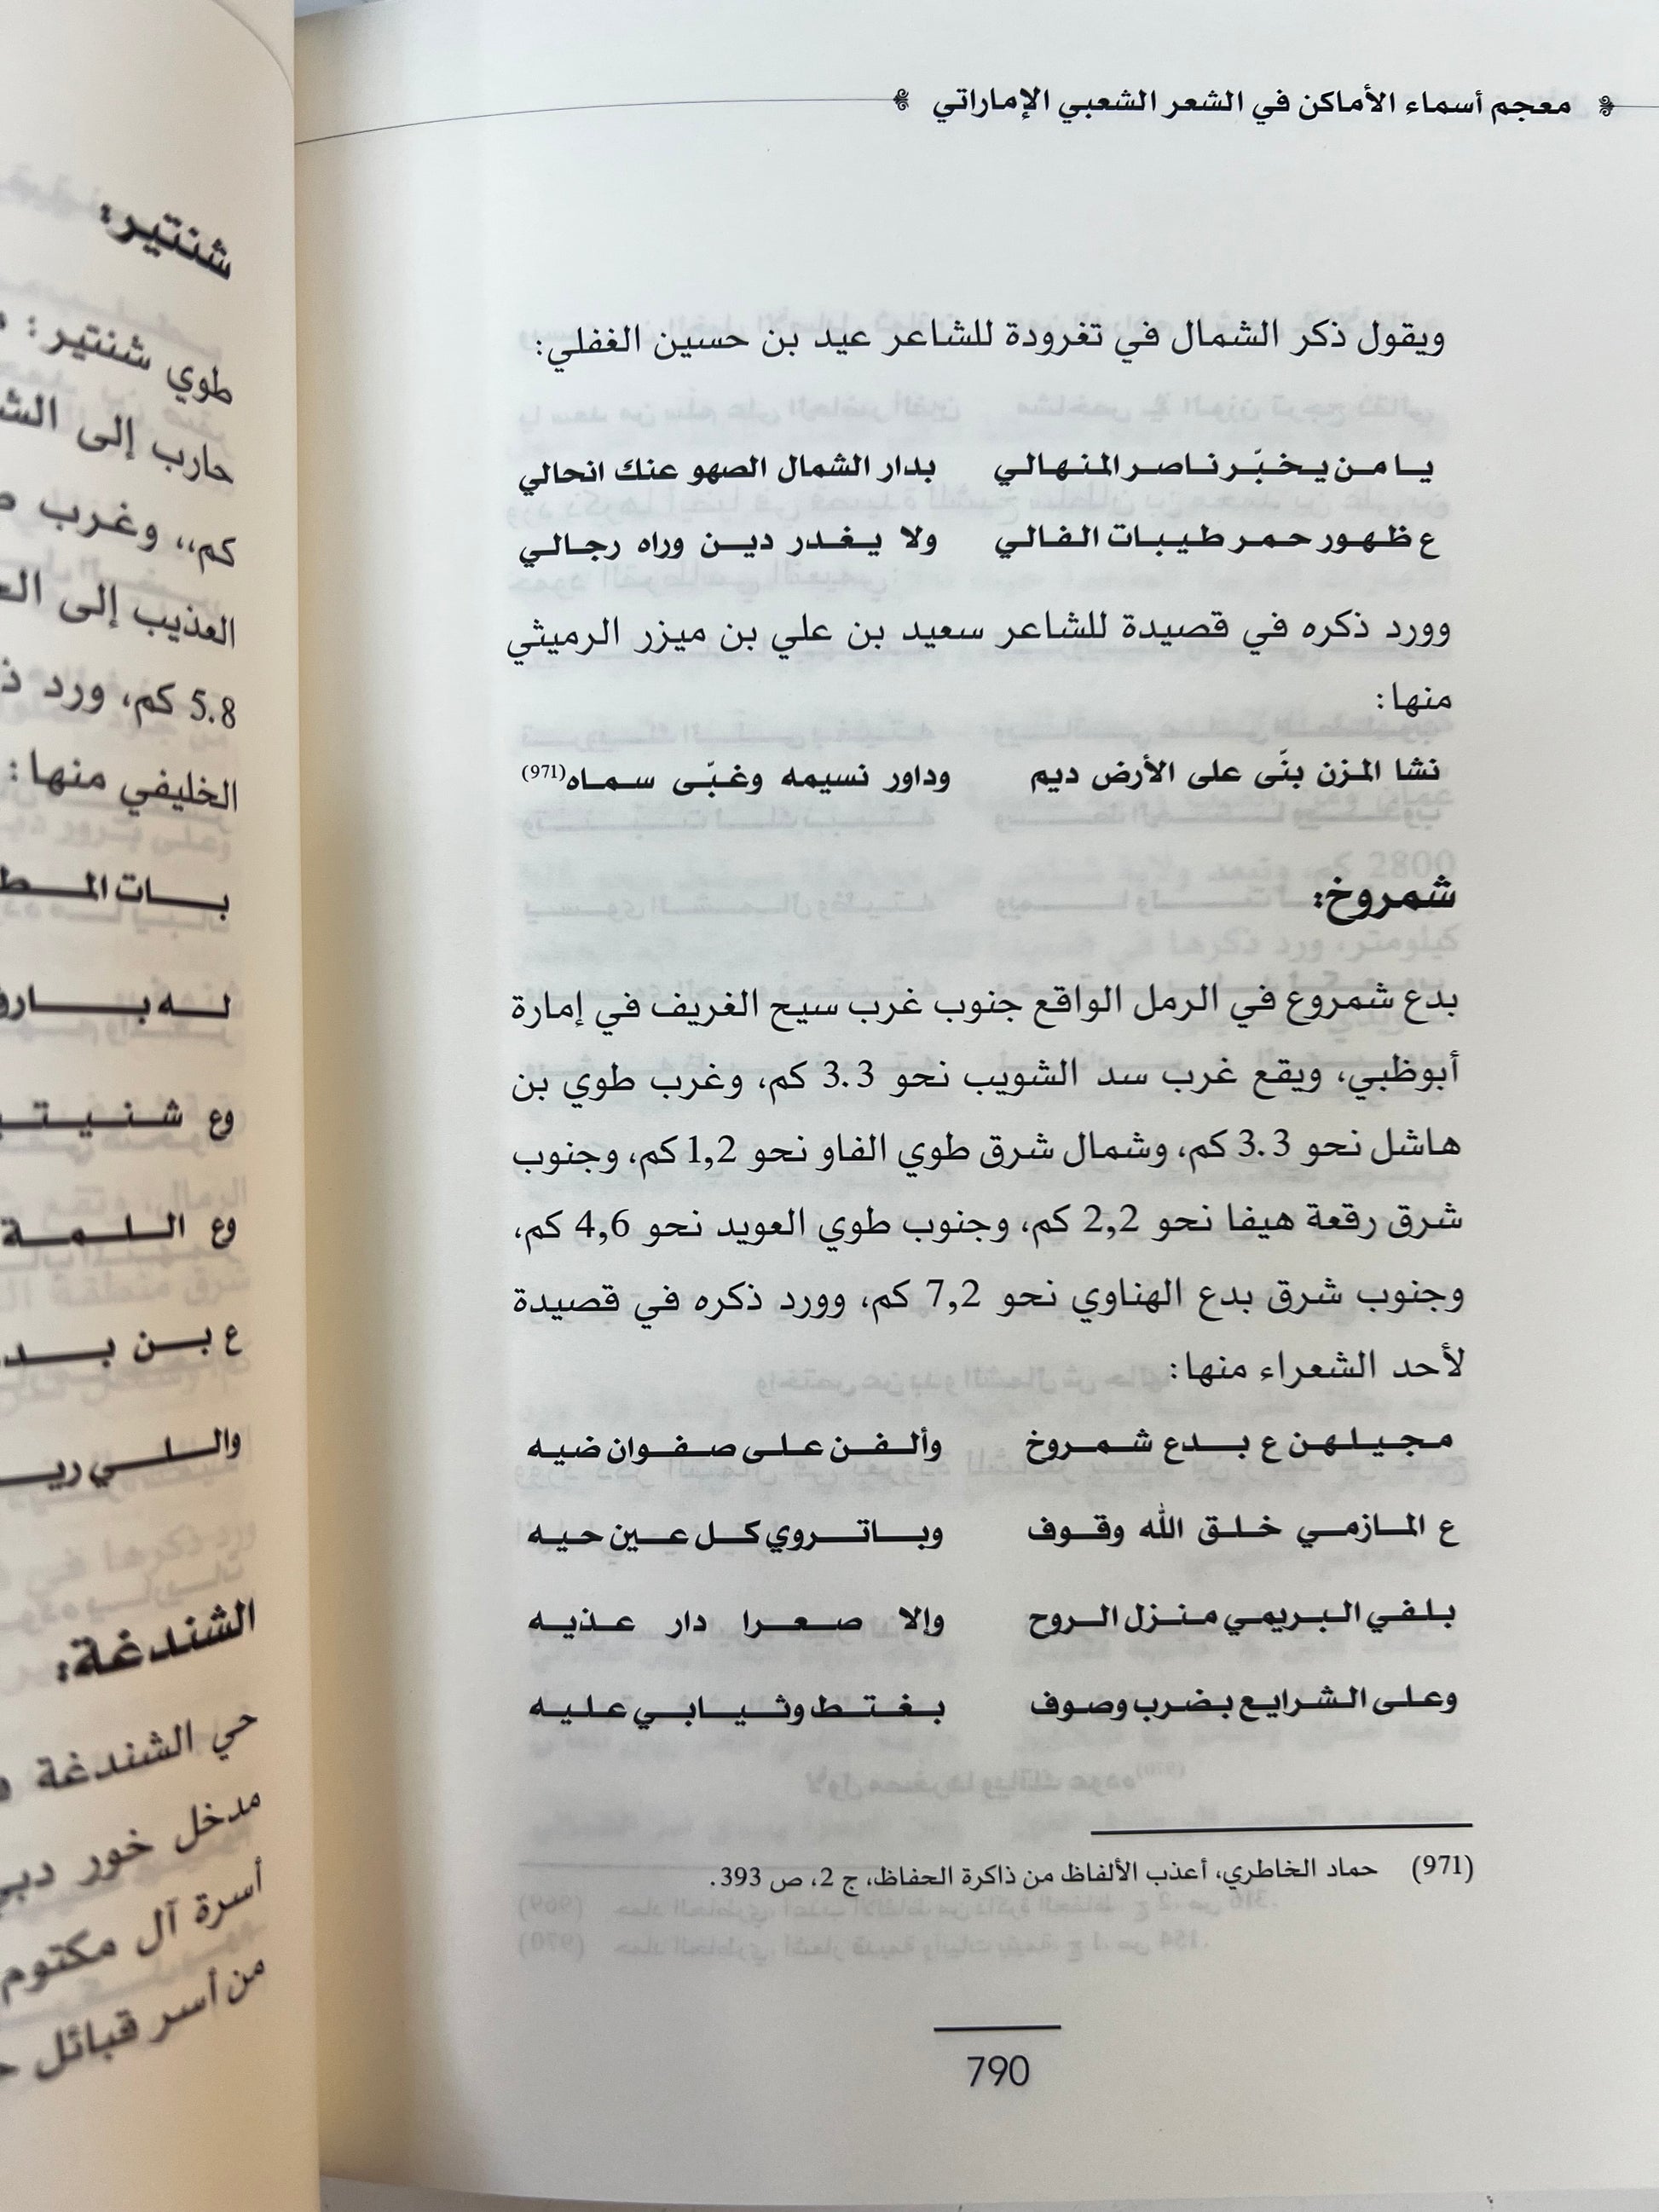 معجم أسماء الأماكن في الشعر الشعبي الإماراتي
ويقول ذكر الشمال في تغرودة للشاعر عيد بن حسين الغفلي:
يا من يخبّر ناصر المنهالي بدار الشمال الصهو عنك انحالي
ع ظهور حمر طيبات الفالي ولا يغدر دين وراه رجالي
وورد ذكره في قصيدة للشاعر سعيد بن علي بن ميزر الرميثي
منها:
نشا المزن بنّى على الأرض ديم وداور نسيمه وغبّى سماه(971)
شمروخ:
بدع شمروع في الرمل الواقع جنوب غرب سيح الغريف في إمارة
أبوظبي، ويقع غرب سد الشويب نحو 3.3 كم، وغرب طوي بن
هاشل نحو 3.3 كم، وشمال شرق طوي الفاو نحو 1,2 كم، وجنوب
شرق رقعة هيفا نحو 2,2 كم، وجنوب طوي العويد نحو 4,6 كم،
وجنوب شرق بدع الهناوي نحو 7,2 كم، وورد ذكره في قصيدة
لأحد الشعراء منها:
مجيلهن ع بدع شمروخ وألفن على صفوان ضيه
ع المازمي خلق الله وقوف وباتروي كل عين حيه
بلفي البريمي منزل الروح وإلا صعرا دار عذيه
وعلى الشرايع بضرب وصوف بغتط وثيابي عليه
(971) حماد الخاطري، أعذب الألفاظ من ذاكرة الحفاظ، ج 2، ص 393.
790
شنتير:
طوي شنتير:
حارب إلى
كم،، وغرب
العذيب إلى
5.8 كم، ورد
الخليفي منها:
بات
له
وع
وع اللمة
ع بن
واللي
الشندغة:
حي الشندغة
مدخل خور دبي
أسرة آل مكتوم
من أسر قبائل